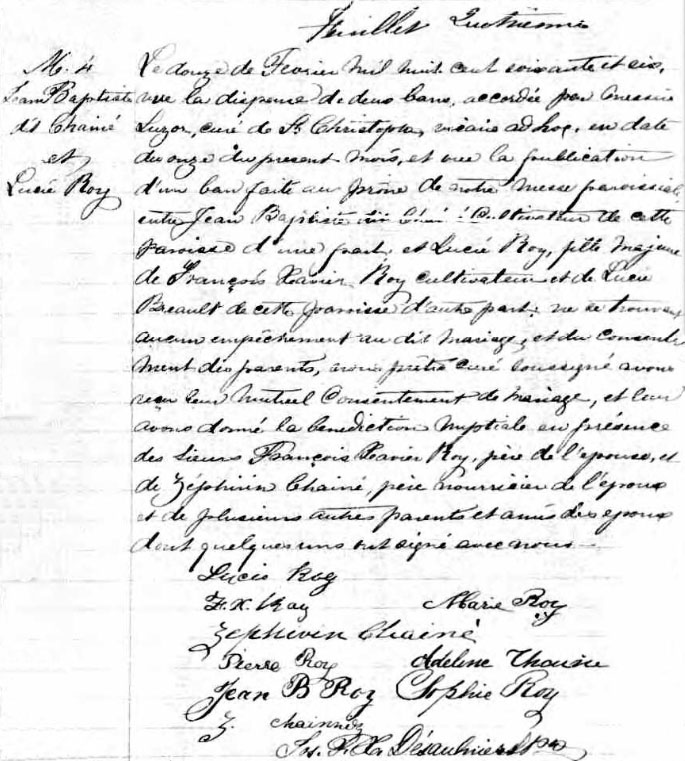 Feuillet Quatrième
M. 4
Jean Baptiste
dit Chainé
et
Lucie Roy
Le douze de Fevrier mil huit cent soixante et six,
vue la dispense de deux bans, accordée par messire
Luzor, curé de St Christophe, vicaire ad hoc, en date
du onze du present mois, et vue la publication
d'un ban faite au prône de notre messe paroissiale
entre Jean Baptiste dit Chainé Cultivateur de cette
Paroisse d'une part, et Lucie Roy, fille majeure
de François Xavier Roy cultivateur et de Lucie
Breault de cette paroisse d'autre part; ne se trouvant
aucun empêchement au dit mariage, et du consente
ment des parents, nous prêtre curé soussigné avons
reçu leur mutuel Consentement de mariage, et leur
avons donné la benediction nuptiale en présence
des Sieurs François Xavier Roy, père de l'epouse, et
de Zéphirin Chainé, père nourricier de l'époux
et de plusieurs autres parents et amis des epoux
dont quelques uns ont signé avec nous
Lucie Roy
F. X. Roy Marie Roy
Zephirin Chainé
Pierre Roy Adeline
Jean B Roy Sophie Roy
Z. chainnéz
Jos. F. X. Désaulniers Ptre